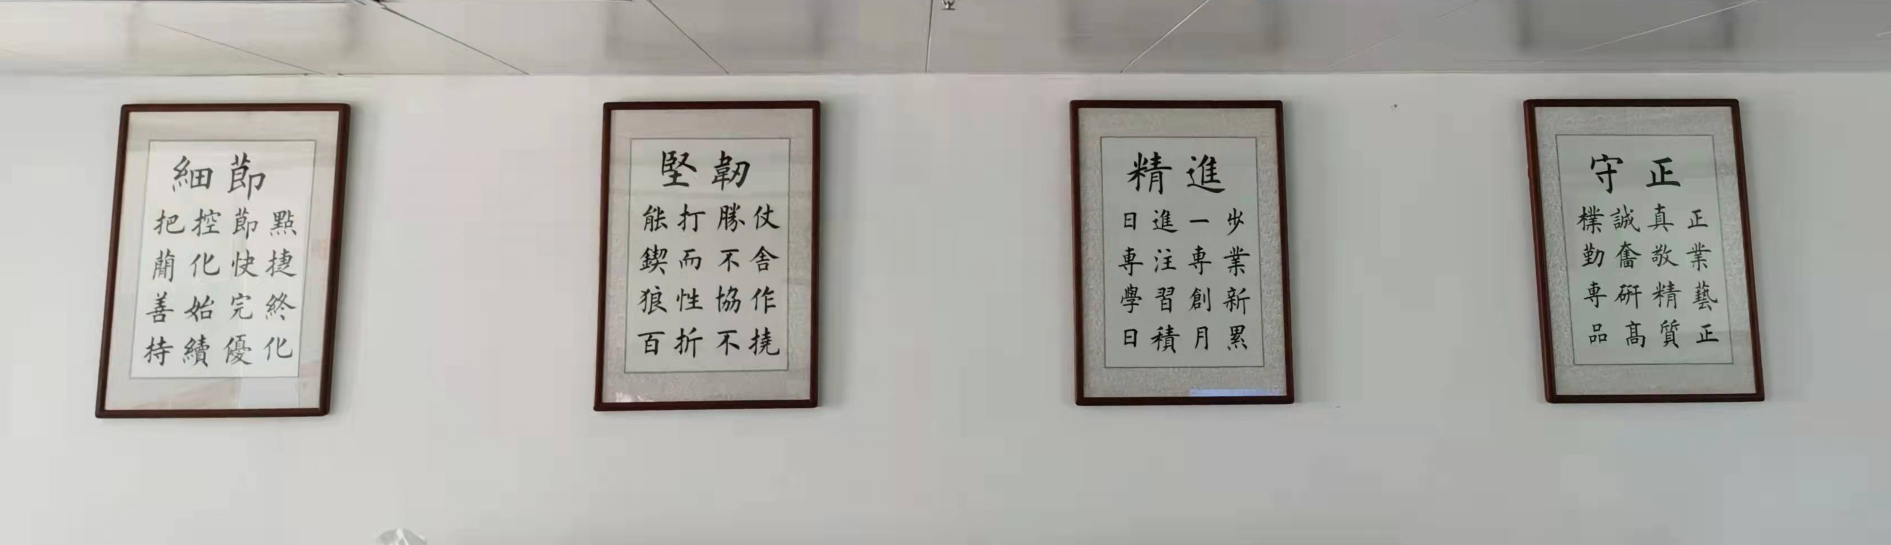 細節
把控節點
簡化快捷
善始完終
持續優化
堅韌
能打勝仗
鍥而不舍
狼性協作
百折不撓
精進
日進一步
專注專業
學習創新
日積月累
守正
樸誠真正
勤奮敬業
專研精藝
品高質正